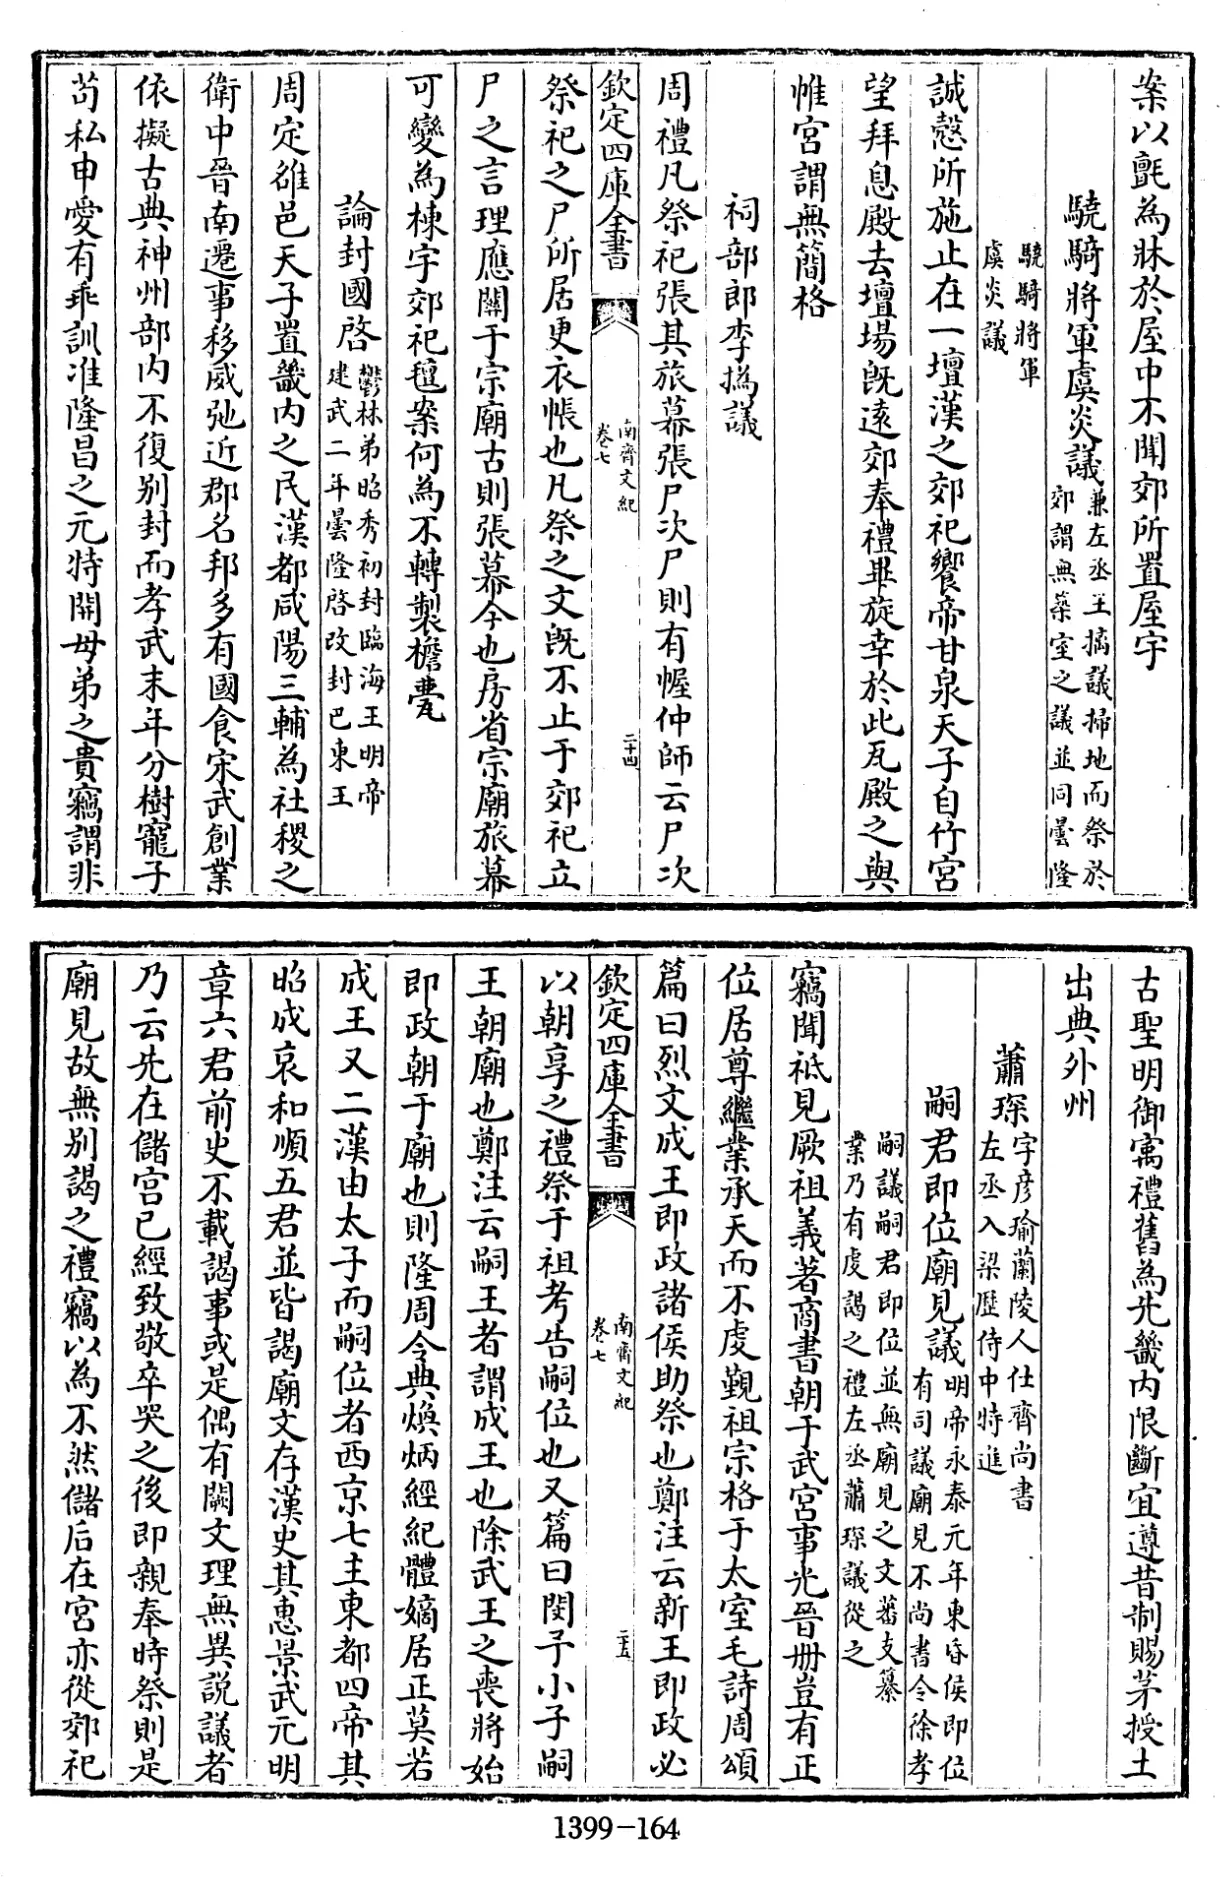 案以氈為牀於屋中不聞郊所置屋宇
驍騎將軍虞炎議兼左丞王摛議掃地而祭於
郊謂無築室之議並同曇隆
驍騎將軍
虞炎議
誠慤所施止在一壇漢之郊祀饗帝甘泉天子自竹宮
望拜息殿去壇場既遠郊奉禮畢旋幸於此瓦殿之與
帷宮謂無簡格
祠部郎李撝議
周禮凡祭祀張其旅幕張尸次尸則有幄仲師云尸次
欽定四庫全書
南齊文紀
卷七
二十四
祭祀之尸所居更衣帳也凡祭之文既不止于郊祀立
尸之言理應關于宗廟古則張幕今也房省宗廟旅幕
可變為棟宇郊祀氊案何為不轉製檐甍
論封國啓鬱林弟昭秀初封臨海王明帝
建武二年曇隆啓改封巴東王
周定雒邑天子置畿内之民漢都咸陽三輔為社稷之
衛中晉南遷事移威弛近郡名邦多有國食宋武創業
依擬古典神州部内不復別封而孝武末年分樹寵子
苟私申愛有乖訓准隆昌之元特開母弟之貴竊謂非
古聖明御寓禮舊為先畿内限斷宜遵昔制賜茅授土
出典外州
蕭琛字彥瑜蘭陵人仕齊尚書
左丞入梁歷侍中特進
嗣君即位廟見議明帝永泰元年東昏侯即位
有司議廟見不尚書令徐孝
嗣議嗣君即位並無廟見之文蕃支纂
業乃有虔謁之禮左丞蕭琛議從之
竊聞祗見厥祖義著商書朝于武宮事光晉册豈有正
位居尊繼業承天而不虔覲祖宗格于太室毛詩周頌
篇曰烈文成王即政諸侯助祭也鄭注云新王即政必
欽定四庫全書
南齊文紀
卷七
二十五
以朝享之禮祭于祖考告嗣位也又篇曰閔予小子嗣
王朝廟也鄭注云嗣王者謂成王也除武王之喪將始
即政朝于廟也則隆周令典煥炳經紀體嫡居正莫若
成王又二漢由太子而嗣位者西京七主東都四帝其
昭成哀和順五君並皆謁廟文存漢史其惠景武元明
章六君前史不載謁事或是偶有闕文理無異説議者
乃云先在儲宮已經致敬卒哭之後即親奉時祭則是
廟見故無別謁之禮竊以為不然儲后在宮亦從郊祀
1399-164